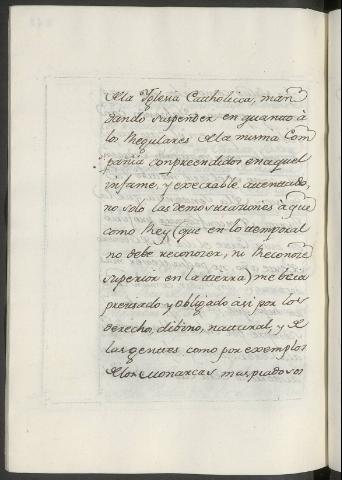 de la Yglesia Catholica, man
dando suspender en quanto à
los Regulares de la misma Com
pañia conpreendidos en aquel
infame, y execrable attentado,
no solo las demostraciones à que
como Rey (que en lo temporal
no debe reconocer, ni Reconoce
superior en la tierra) me beia
prensado y obligado asi por los
derecho, dibino, natural, y de
las gentes como por exemplos
de los Monarcas mas piadosos